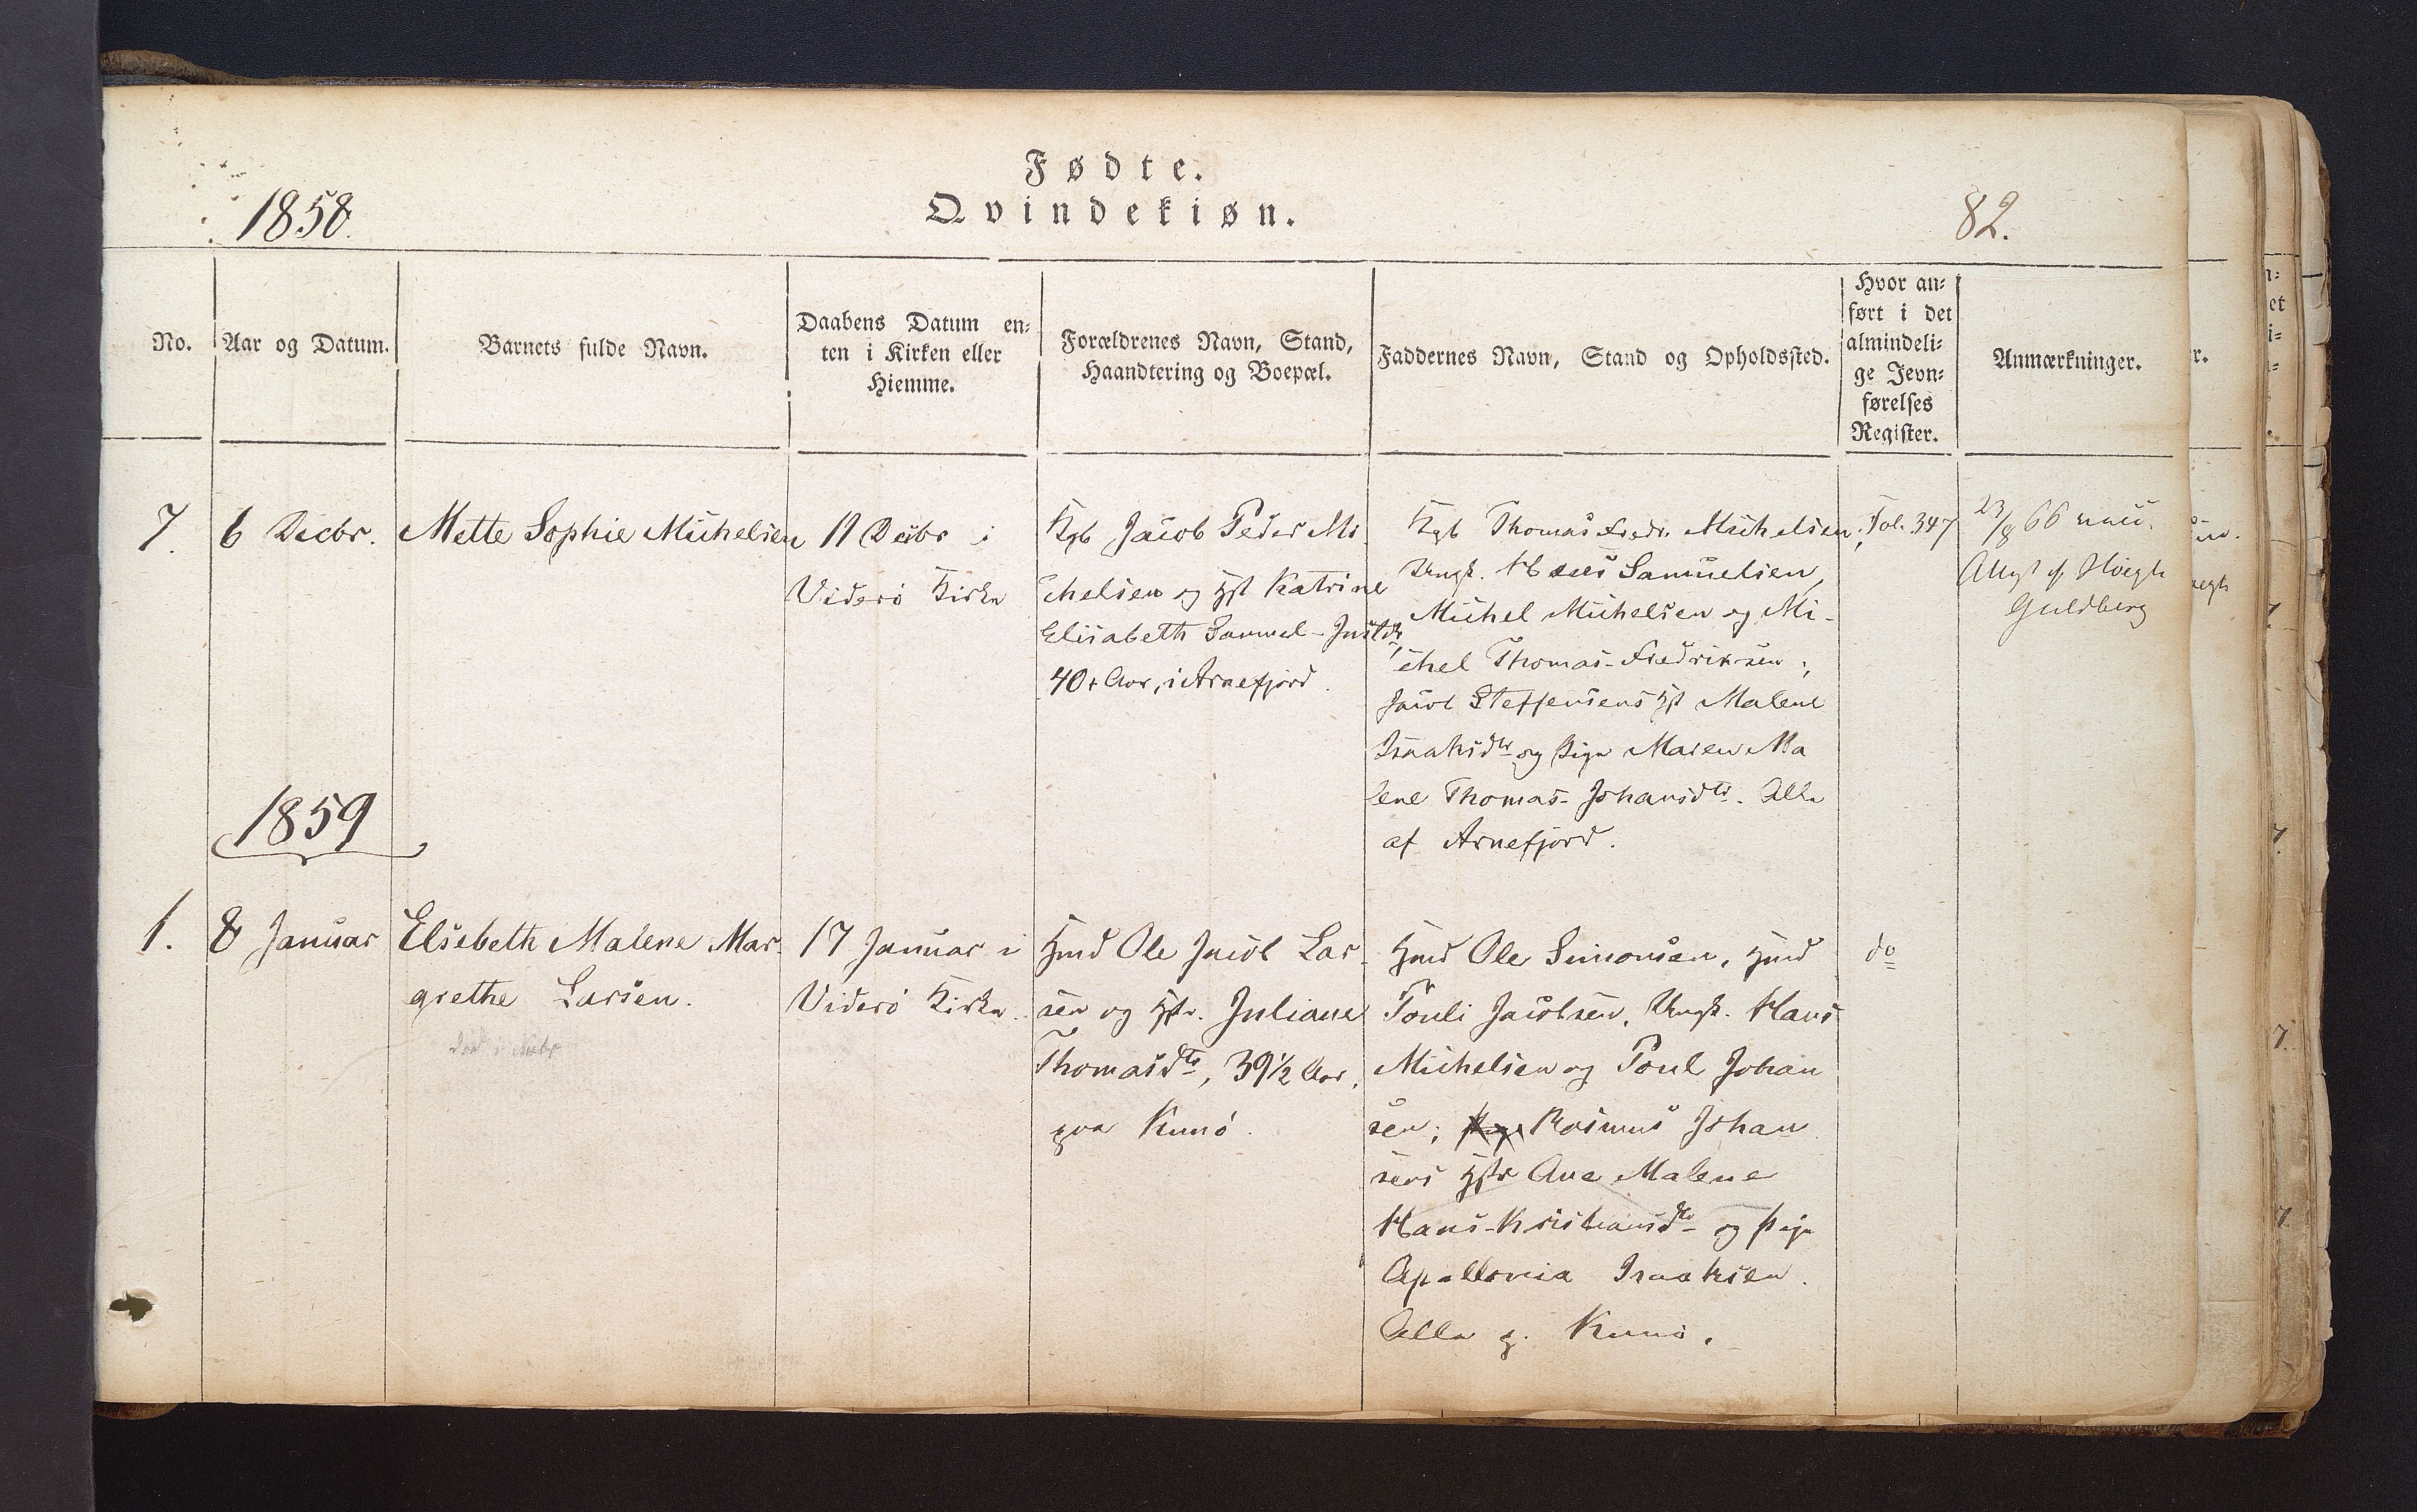 Fødte.
Qvindekiøn.
1858.
82.
No.
Aar og Datum.
Barnets fulde Navn.
Daabens Datum en-
ten i Kirken eller
Hiemme.
Forældrenes Navn, Stand,
Haandtering og Boepæl.
Faddernes Navn, Stand og Opholdssted.
Hvor an-
ført i det
almindeli-
ge Jevn-
førelses
Register.
Anmærkninger.
7.
6 Decbr.
Mette Sophie Michelsen
11 Decbr i
Viderö Kirke
Kgb Jacob Peder Mi-
chelsen og Hst Katrine
Elisabeth Samuel-Justdtr,
40 Aar, i Arnefjord.
Kgb Thomas Fredr. Michelsen;
Ungk. Hans Samuelsen,
Michel Michelsen og Mi-
chel Thomas-Fredriksen;
Jacob Steffensens Hst Malene
Isaaksdtr og Pige Maren Ma
lene Thomas-Johansdtr. Alle
af Arnefjord.
Fol. 347
23/8 66 vacc.
Att. af Høegh
Guldberg
1859
1.
8 Januar
Elsebeth Malene Mar-
grethe Larsen.
17 Januar i
Viderö Kirke.
Hmd Ole Jacob Lar-
sen og Hstr. Juliane
Thomasdtr, 39½ Aar,
paa Kunö.
Hmd Ole Simonsen, Hmd
Pouli Jacobsen, Ungk. Hans
Michelsen og Poul Johan
sen; Rasmus Johan
sens Hstr Ane Malene
Hans-Kristiansdtr og Pige
Apallonia Isaaksen.
Alle p. Kunö.
do